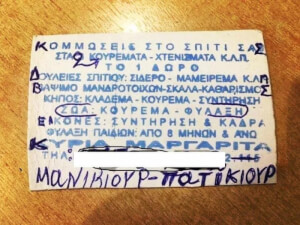 ΚΟΜΜΩΣΕΙΣ ΣΤΟ ΣΠΙΤΙ ΣΑΣ
2 ΚΟΥΡΕΜΑΤΑ-ΧΤΕΝΙΣΜΑΤΑ Κ.Λ.Π.
ΤΟ 1 ΔΩΡΟ
ΔΟΥΛΕΙΕΣ ΣΠΙΤΙΟΥ: ΣΙΔΕΡΟ - ΜΑΜΕΙΡΕΜΑ Κ.Λ.Π
ΒΑΨΙΜΟ ΜΑΝΔΡΟΤΟΙΧΩΝ-ΣΚΑΛΑ-ΚΑΘΑΡΙΣΜΟΣ
ΚΗΠΟΣ: ΚΛΑΔΕΜΑ - ΚΟΥΡΕΜΑ - ΣΥΝΤΗΡΗΣΗ
ΖΩΑ: ΚΟΥΡΕΜΑ - ΦΥΛΑΞΗ
ΕΙΚΟΝΕΣ: ΣΥΝΤΗΡΗΣΗ & ΚΑΔΡΑ
ΦΥΛΑΞΗ ΠΑΙΔΙΩΝ: ΑΠΟ 8 ΜΗΝΩΝ & ΑΝΩ
ΚΥΡΙΑ ΜΑΡΓΑΡΙΤΑ
ΤΗΛ:
ΜΑΝΙΚΙΟΥΡ-ΠΑΤΙΚΙΟΥΡ